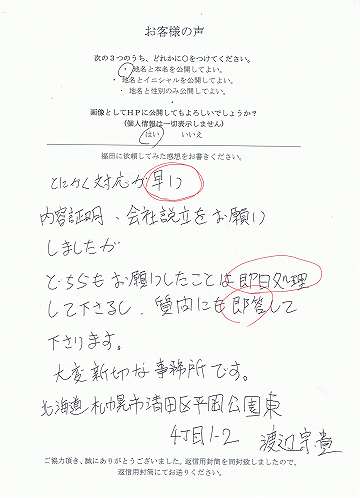 お客様の声
次の３つのうち、どれかに○をつけてください。
・地名と本名を公開してよい。
・地名とイニシャルを公開してよい。
・地名と性別のみ公開してよい。
画像としてＨＰに公開してもよろしいでしょうか？
(個人情報は一切表示しません)
はい　いいえ
福田に依頼してみた感想をお書きください。
とにかく対応が早い
内容証明、会社設立をお願い
しましたが
どちらもお願いしたことは即日処理
して下さるし、質問にも即答して
下さります。
大変親切な事務所です。
北海道札幌市清田区平岡公園東
4丁目1-2　渡辺宗
ご協力頂き、誠にありがとうございました。返信用封筒を同封致しましたので、
返信用封筒にてお送りください。